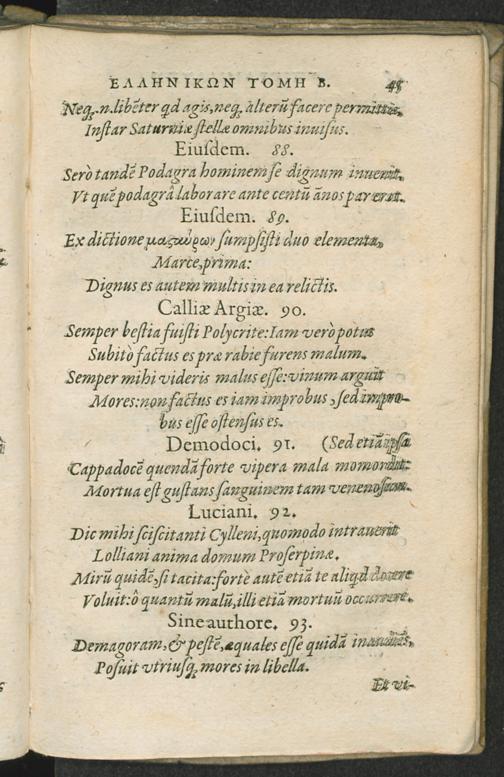 ΕΛΛΗΝΙΚΩΝ ΤΟΜΗ Β. 48
Neq́.n.libēter qd agis,neq́. alterū facere permittis.
Instar Saturniæ stellæ omnibus inuisus.
Eiusdem. 88.
Serò tandē Podagra hominem se dignum inuenit.
Vt quē podagrâ laborare ante centū ānos par erat.
Eiusdem. 89.
Ex dictione μαςαύρων sumpsisti duo elementa,
Marce,prima:
Dignus es autem multis in ea relictis.
Calliæ Argiæ. 90.
Semper bestia fuisti Polycrite:Iam verò potus
Subitò factus es præ rabie furens malum.
Semper mihi videris malus esse:vinum arguit
Mores:non factus es iam improbus, sed impro-
bus esse ostensus es.
Demodoci. 91. (Sed etiā ipsa
Cappadocē quendā forte vipera mala momordit:
Mortua est gustans sanguinem tam venenosum.
Luciani. 92.
Dic mihi sciscitanti Cylleni,quomodo intrauerit
Lolliani anima domum Proserpinæ.
Mirū quidē,si tacita:fortè autē etiā te aliqd docere
Voluit:ô quantū malū,illi etiā mortuū occurrere.
Sine authore. 93.
Demagoram,& pestē,æquales esse quidā
Posuit vtriusq́, mores in libella.
Et vi-